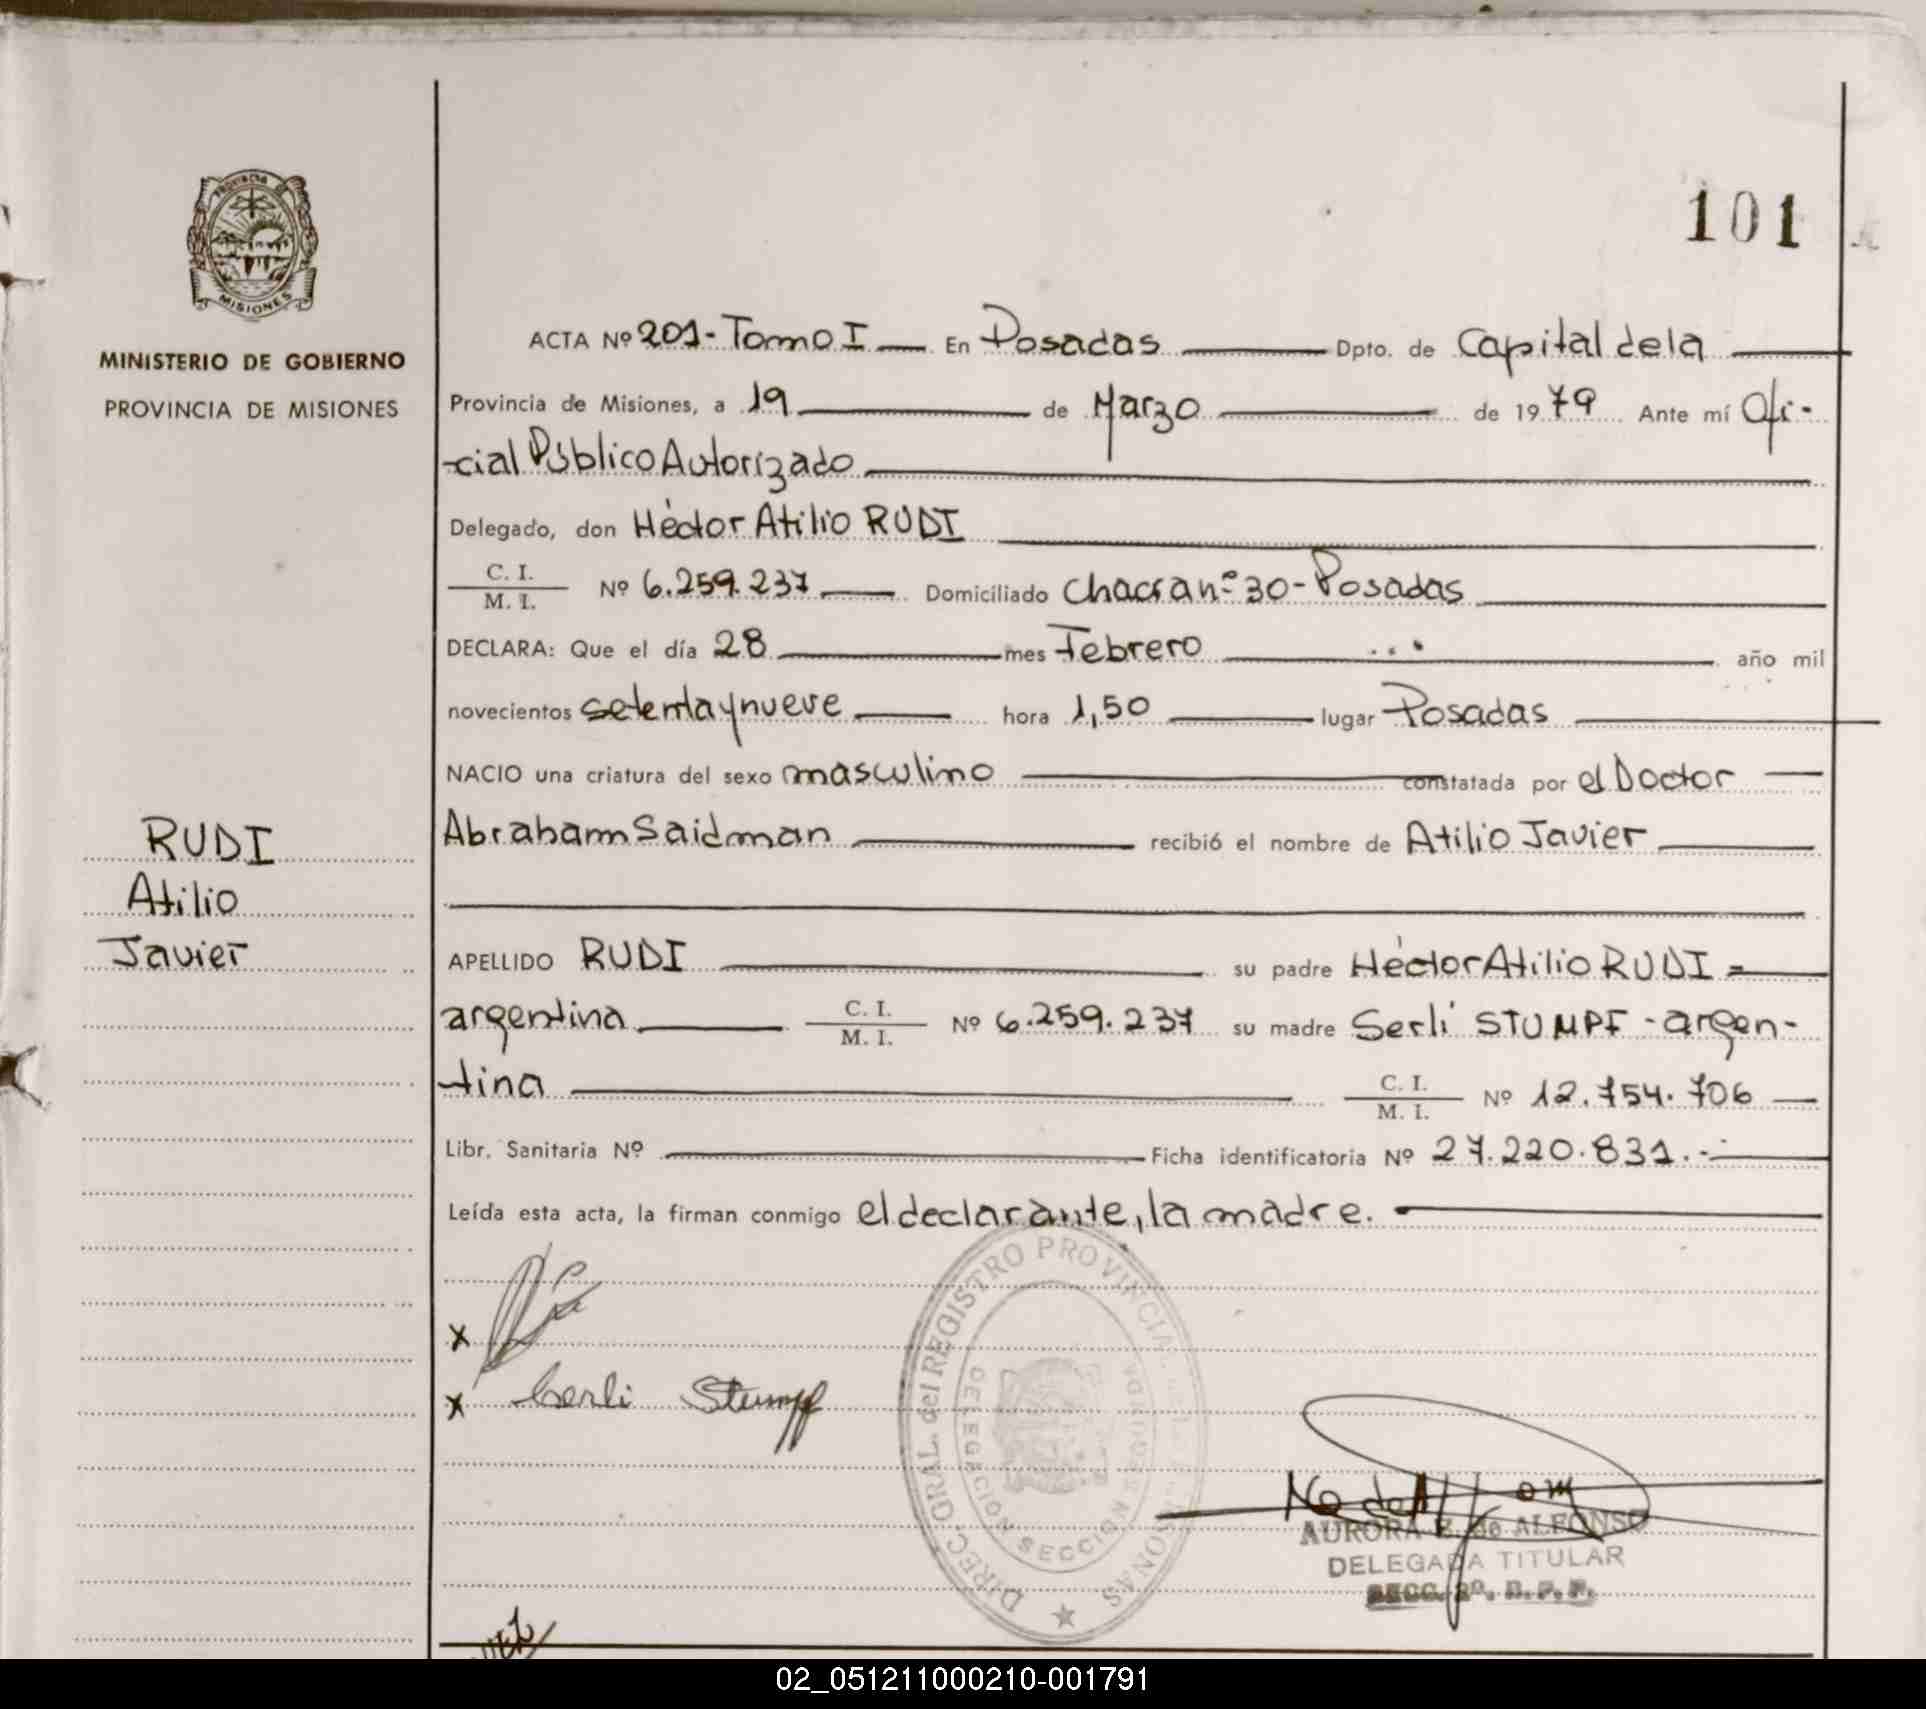 PROVINCIA DE
MISIONES
MINISTERIO DE GOBIERNO
PROVINCIA DE MISIONES
101
ACTA Nº 201 - Tomo I En Posadas Dpto. de Capital de la
Provincia de Misiones, a 19 de Marzo de 1979 Ante mí Ofi-
cial Público Autorizado
Delegado, don Héctor Atilio RUDI
C. I.
M. I. Nº 6.259.237 Domiciliado Chacra nº 30 - Posadas
DECLARA: Que el día 28 mes Febrero año mil
novecientos setenta y nueve hora 1,50 lugar Posadas
NACIO una criatura del sexo masculino constatada por el Doctor
Abraham Saidman recibió el nombre de Atilio Javier
RUDI
Atilio
Javier
APELLIDO RUDI su padre Héctor Atilio RUDI
argentina C. I. M. I. Nº 6.259.237 su madre Serli STUMPF - argen-
tina C. I. M. I. Nº 12.754.706
Libr. Sanitaria Nº Ficha identificatoria Nº 27.220.831.-
Leída esta acta, la firman conmigo el declarante, la madre.
x
x Serli Stumpf
DIREC. GRAL. del REGISTRO PROVINCIAL
DELEGACION SECCION
AURORA de ALFONSO
DELEGADA TITULAR
SECC. 2º.
02_051211000210-001791